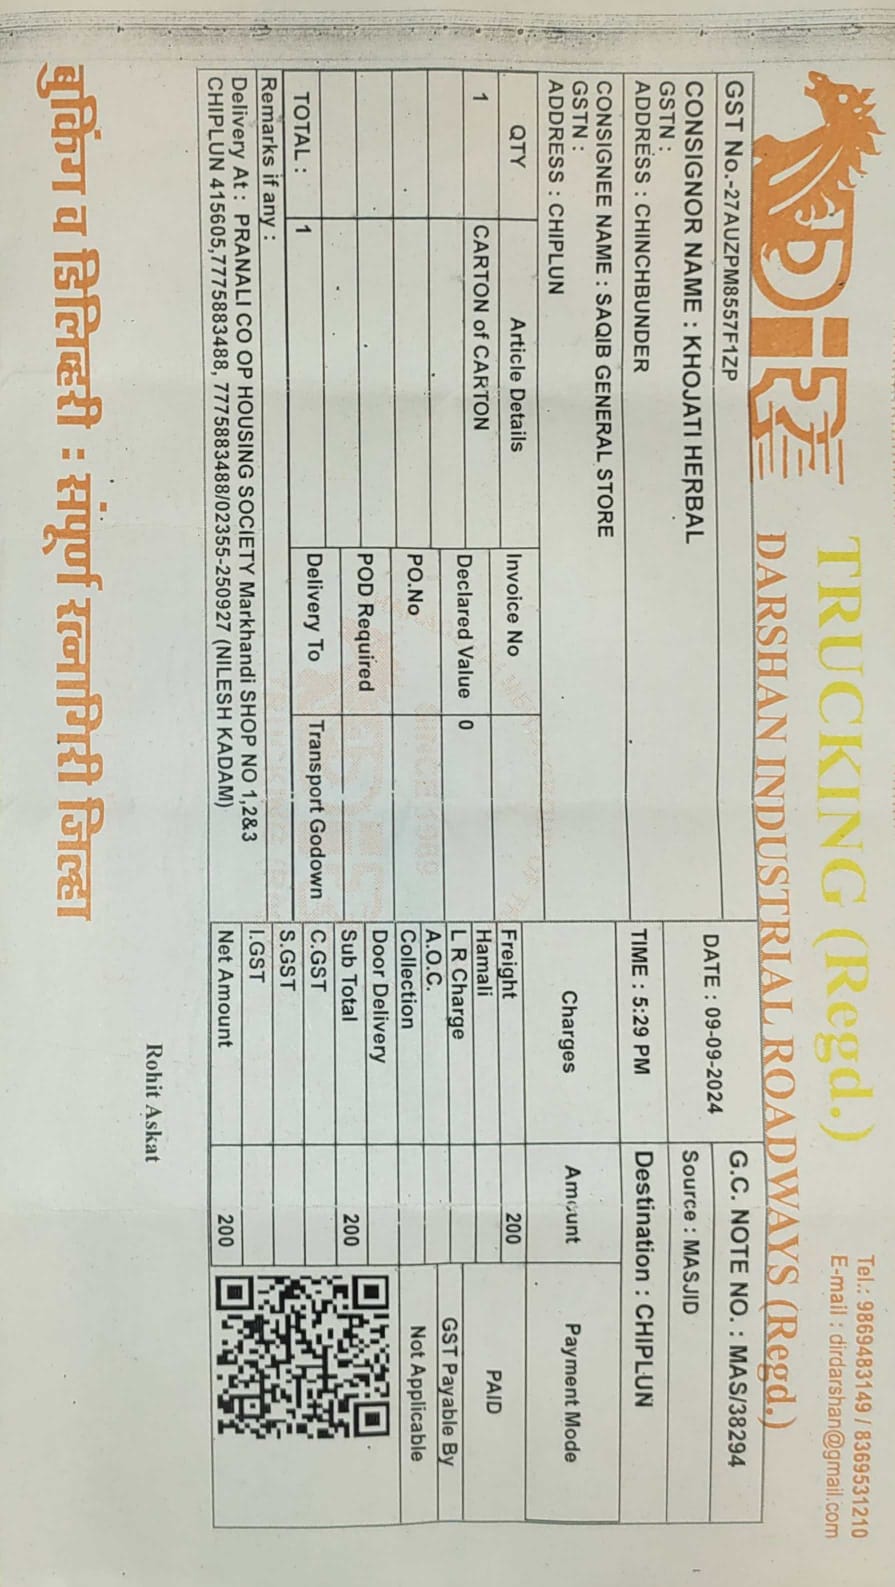 DIR
TRUCKING (Regd.)
Tel.: 9869483149 / 8369531210
E-mail : dirdarshan@gmail.com
DARSHAN INDUSTRIAL ROADWAYS (Regd.)
GST No.-27AUZPM8557F1ZP
DATE : 09-09-2024
G.C. NOTE NO. : MAS/38294
CONSIGNOR NAME : KHOJATI HERBAL
Source : MASJID
GSTN :
ADDRESS : CHINCHBUNDER
TIME : 5:29 PM
Destination : CHIPLUN
CONSIGNEE NAME : SAQIB GENERAL STORE
GSTN :
ADDRESS : CHIPLUN
Charges Amount Payment Mode
QTY Article Details Invoice No
Freight 200
1 CARTON of CARTON
Hamali
PAID
Declared Value 0
L R Charge
GST Payable By
A.O.C.
PO.No
Collection
Not Applicable
POD Required
Door Delivery
Sub Total 200
TOTAL : 1
Delivery To Transport Godown
C.GST
Remarks if any :
S.GST
Delivery At : PRANALI CO OP HOUSING SOCIETY Markhandi SHOP NO 1,2&3
I.GST
CHIPLUN 415605,7775883488, 7775883488/02355-250927 (NILESH KADAM)
Net Amount 200
SINCE 1989
Rohit Askat
बुकिंग व डिलिव्हरी : संपूर्ण रत्नागिरी जिल्हा